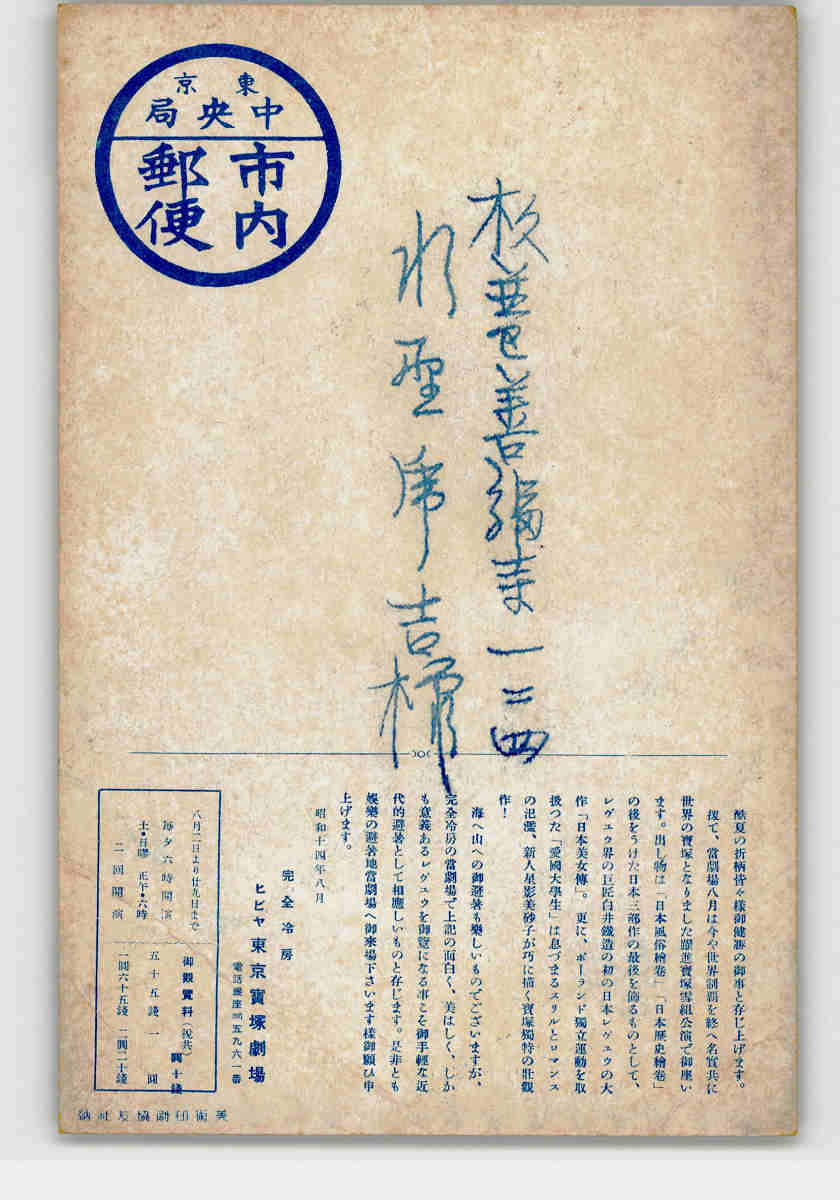 東京
中央局
市内
郵便
酷夏の折柄皆々様御健勝の御事と存じ上げます。
扨て、當劇場八月は今や世界制覇を終へ名實共に
世界の寶塚となりました躍進寶塚雪組公演で御座い
ます。出し物は「日本風俗繪卷」「日本歷史繪卷」
の後をうけた日本三部作の最後を飾るものとして、
レヴュウ界の巨匠白井鐵造の初の日本レヴュウの大
作「日本美女傳」。更に、ポーランド獨立運動を取
扱つた「愛國大學生」は息づまるスリルとロマンス
の氾濫、新人星影美砂子が巧に描く寶塚獨特の壯觀
作!
海へ山への御避暑も樂しいものでございますが、
完全冷房の當劇場で上記の面白く、美はしく、しか
も意義あるレヴュウを御覽になる事こそ御手輕な近
代的避暑として相應しいものと存じます。是非とも
娛樂の避暑地當劇場へ御來場下さいます樣御願ひ申
上げます。
昭和十四年八月
完全冷房
ヒビヤ東京寶塚劇場
電話銀座(57)五九六一番
八月二日より廿九日まで
每夕六時開演
土・日曜 正午・六時
二回開演
御觀覽料(税共)
四十錢
五十五錢 一圓
一圓六十五錢 二圓二十錢
吉樣